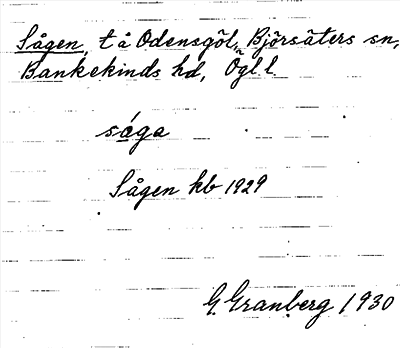 Sågen, t å Odensgöl, Björsäters sn,
Bankekinds hd, Ögl l.
såga
Sågen kb 1929
G. Granberg 1930